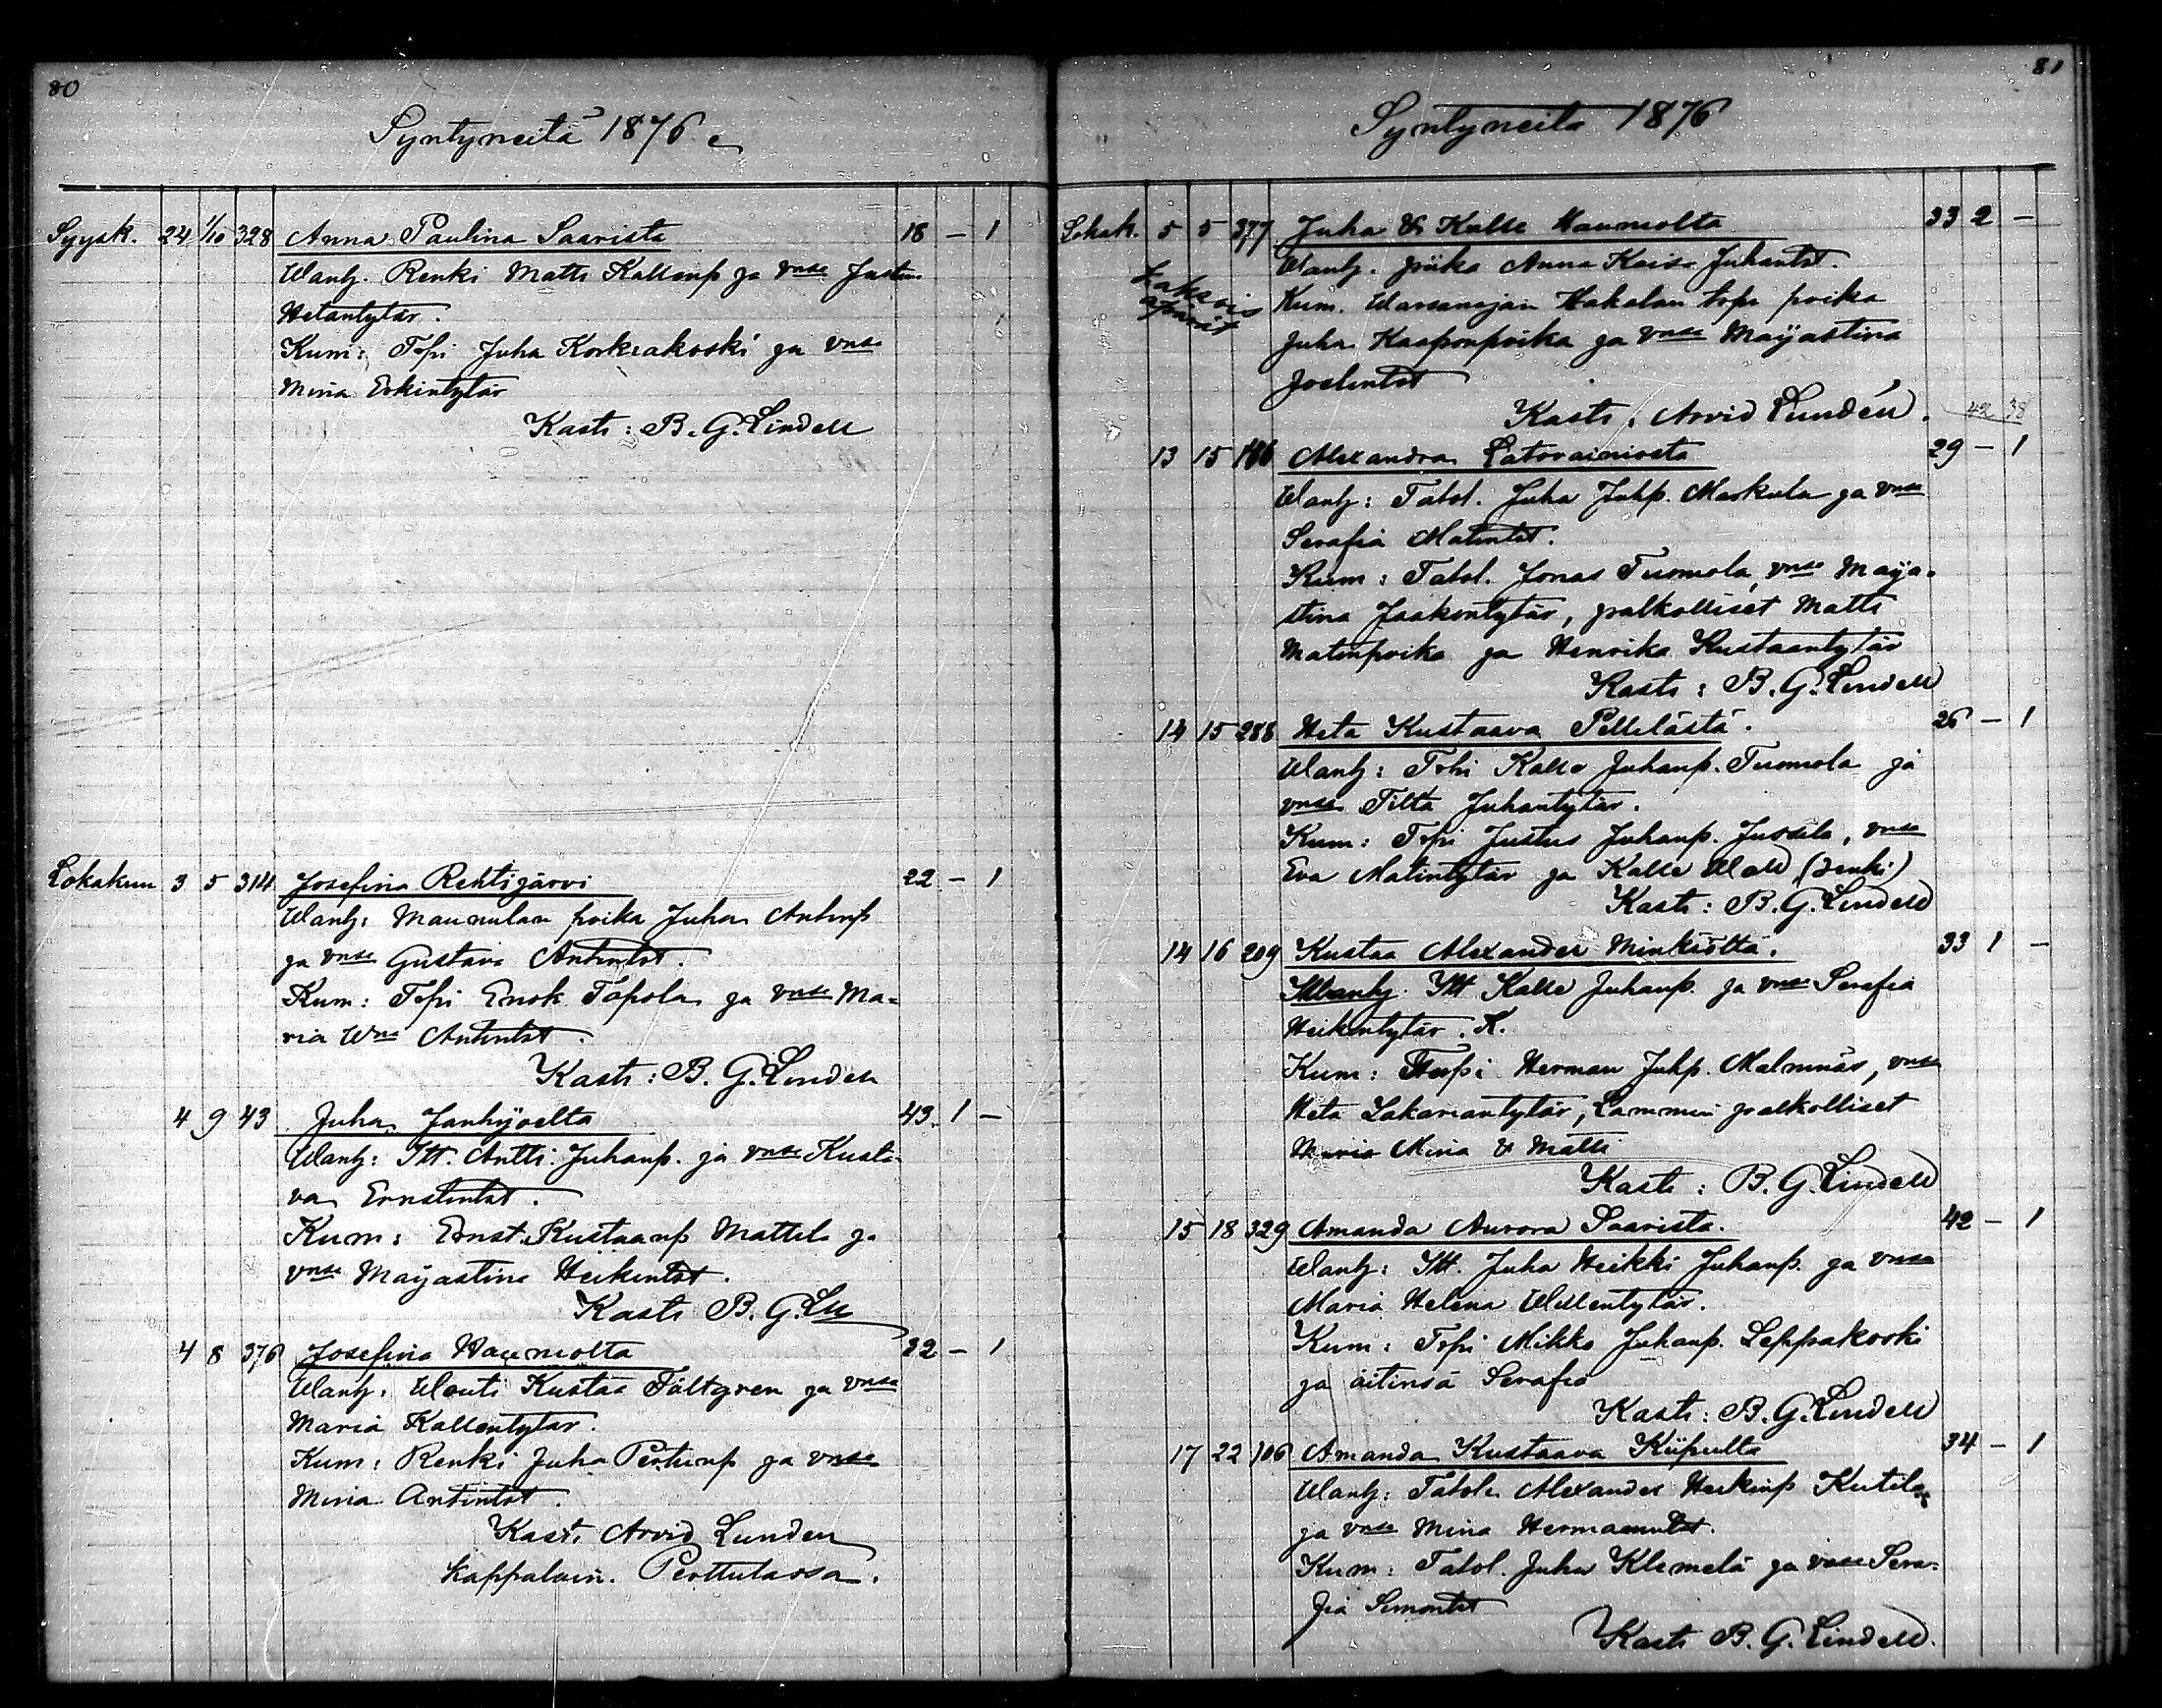 80
Syntyneitä 1876
Syysk. 24 1/10 328 Anna Paulina Saarista 18 — 1
Wanh. Renki Matti Kallenp ja vmsa Justina
Hetantytär.
Kum: Tspi Juha Korkiakoski ja vmsa
Miina Erkintytär
Kasti: B. G. Lindell
Lokakuu 3 5 314 Josefina Rehtijärvi 22 — 1
Wanh: Maunulan poika Juha Antinp
ja vmsa Gustava Antintat.
Kum: Tspi Enok Tapola ja vmsa Ma-
ria Antintat.
Kasti: B. G. Lindell
4 9 43 Juha Janhijoelta 43 1 —
Wanh: Itt. Antti Juhanp. ja vmsa Kusta-
va Ernstintat.
Kum: Ernst Kustaanp Mattila ja
vmsa Maijastina Heikintat.
Kasti B. G. Ln
4 8 376 Josefina Haunolta 32 — 1
Wanh: Wouti Kustaa Fältgren ja vmsa
Maria Kallentytär.
Kum: Renki Juha Pertunp ja vmsa
Miina Antintat.
Kasti Arvid Lunden
Kappalain. Perttulassa.
81
Syntyneitä 1876
Lokak. 5 5 377 Juha & Kalle Hauniolta 33 2 —
Wanh. piika Anna Kaisa Juhantat.
Kum. Warsanojan Hakalan tspn poika
Juha Kaaponpoika ja vmsa Maijastina
Joelintat
Kasti. Arvid Lundén.
42 38
13 15 186 Alexandra Latovainiosta 29 — 1
Wanh: Tatol. Juha Juhp. Markula ja vmsa
Serafia Matintat.
Kum: Tatol. Jonas Tuomola, vmsa Maija-
stina Jaakontytär, palkolliset Matti
Matinpoika ja Henrika Kustaantytär
Kasti: B. G. Lindell
14 15 288 Heta Kustaava Pellilästä. 26 — 1
Wanh: Tspi Kalle Juhanp. Tuomola ja
vmsa Tilta Juhantytär.
Kum: Tspi Justus Juhanp. Jussila, vmsa
Eva Matintytär ja Kalle Wall (renki)
Kasti: B. G. Lindell
14 16 209 Kustaa Alexander Minkiöltä. 33 1 —
Wanh. Itt Kalle Juhanp. ja vmsa Serafia
Heikintytär. K.
Kum: Tspi Herman Juhp. Malmnäs, vmsa
Heta Sakariantytär, Lammin palkolliset
Maria Miina & Matti
Kasti: B. G. Lindell
15 18 329 Amanda Aurora Saarista. 42 — 1
Wanh: Itt. Juha Heikki Juhanp. ja vmsa
Maria Helena Willentytär.
Kum: Tspi Mikko Juhanp. Leppäkoski
ja äitinsä Serafia
Kasti: B. G. Lindell
17 22 106 Amanda Kustaava Kiipulta 34 — 1
Wanh: Tatol. Alexander Heikinp Kutila
ja vmsa Miina Hermannintat.
Kum: Tatol. Juha Klemelä ja vmsa Sera-
fia Simontat
Kasti B. G. Lindell.